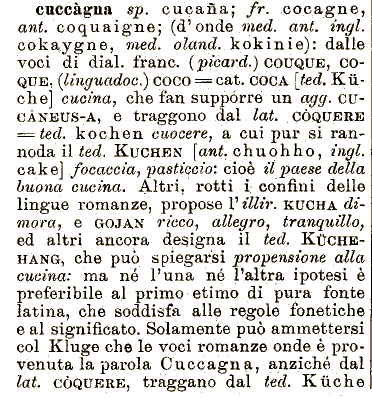 cuccàgna sp. cucaña; fr. cocagne,
ant. coquaigne; (d'onde med. ant. ingl.
cokaygne, med. oland. kokinie): dalle
voci di dial. franc. (picard.) COUQUE, CO-
QUE, (linguadoc.) COCO = cat. COCA [ted. Kü-
che] cucina, che fan supporre un agg. CU-
CÀNEUS-A, e traggono dal lat. CÒQUERE
= ted. kochen cuocere, a cui pur si ran-
noda il ted. KUCHEN [ant. chuohho, ingl.
cake] focaccia, pasticcio: cioè il paese della
buona cucina. Altri, rotti i confini delle
lingue romanze, propose l'illir. KUCHA di-
mora, e GOJAN ricco, allegro, tranquillo,
ed altri ancora designa il ted. KÜCHE-
HANG, che può spiegarsi propensione alla
cucina: ma né l'una né l'altra ipotesi è
preferibile al primo etimo di pura fonte
latina, che soddisfa alle regole fonetiche
e al significato. Solamente può ammettersi
col Kluge che le voci romanze onde è pro-
venuta la parola Cuccagna, anziché dal
lat. CÒQUERE, traggano dal ted. Küche